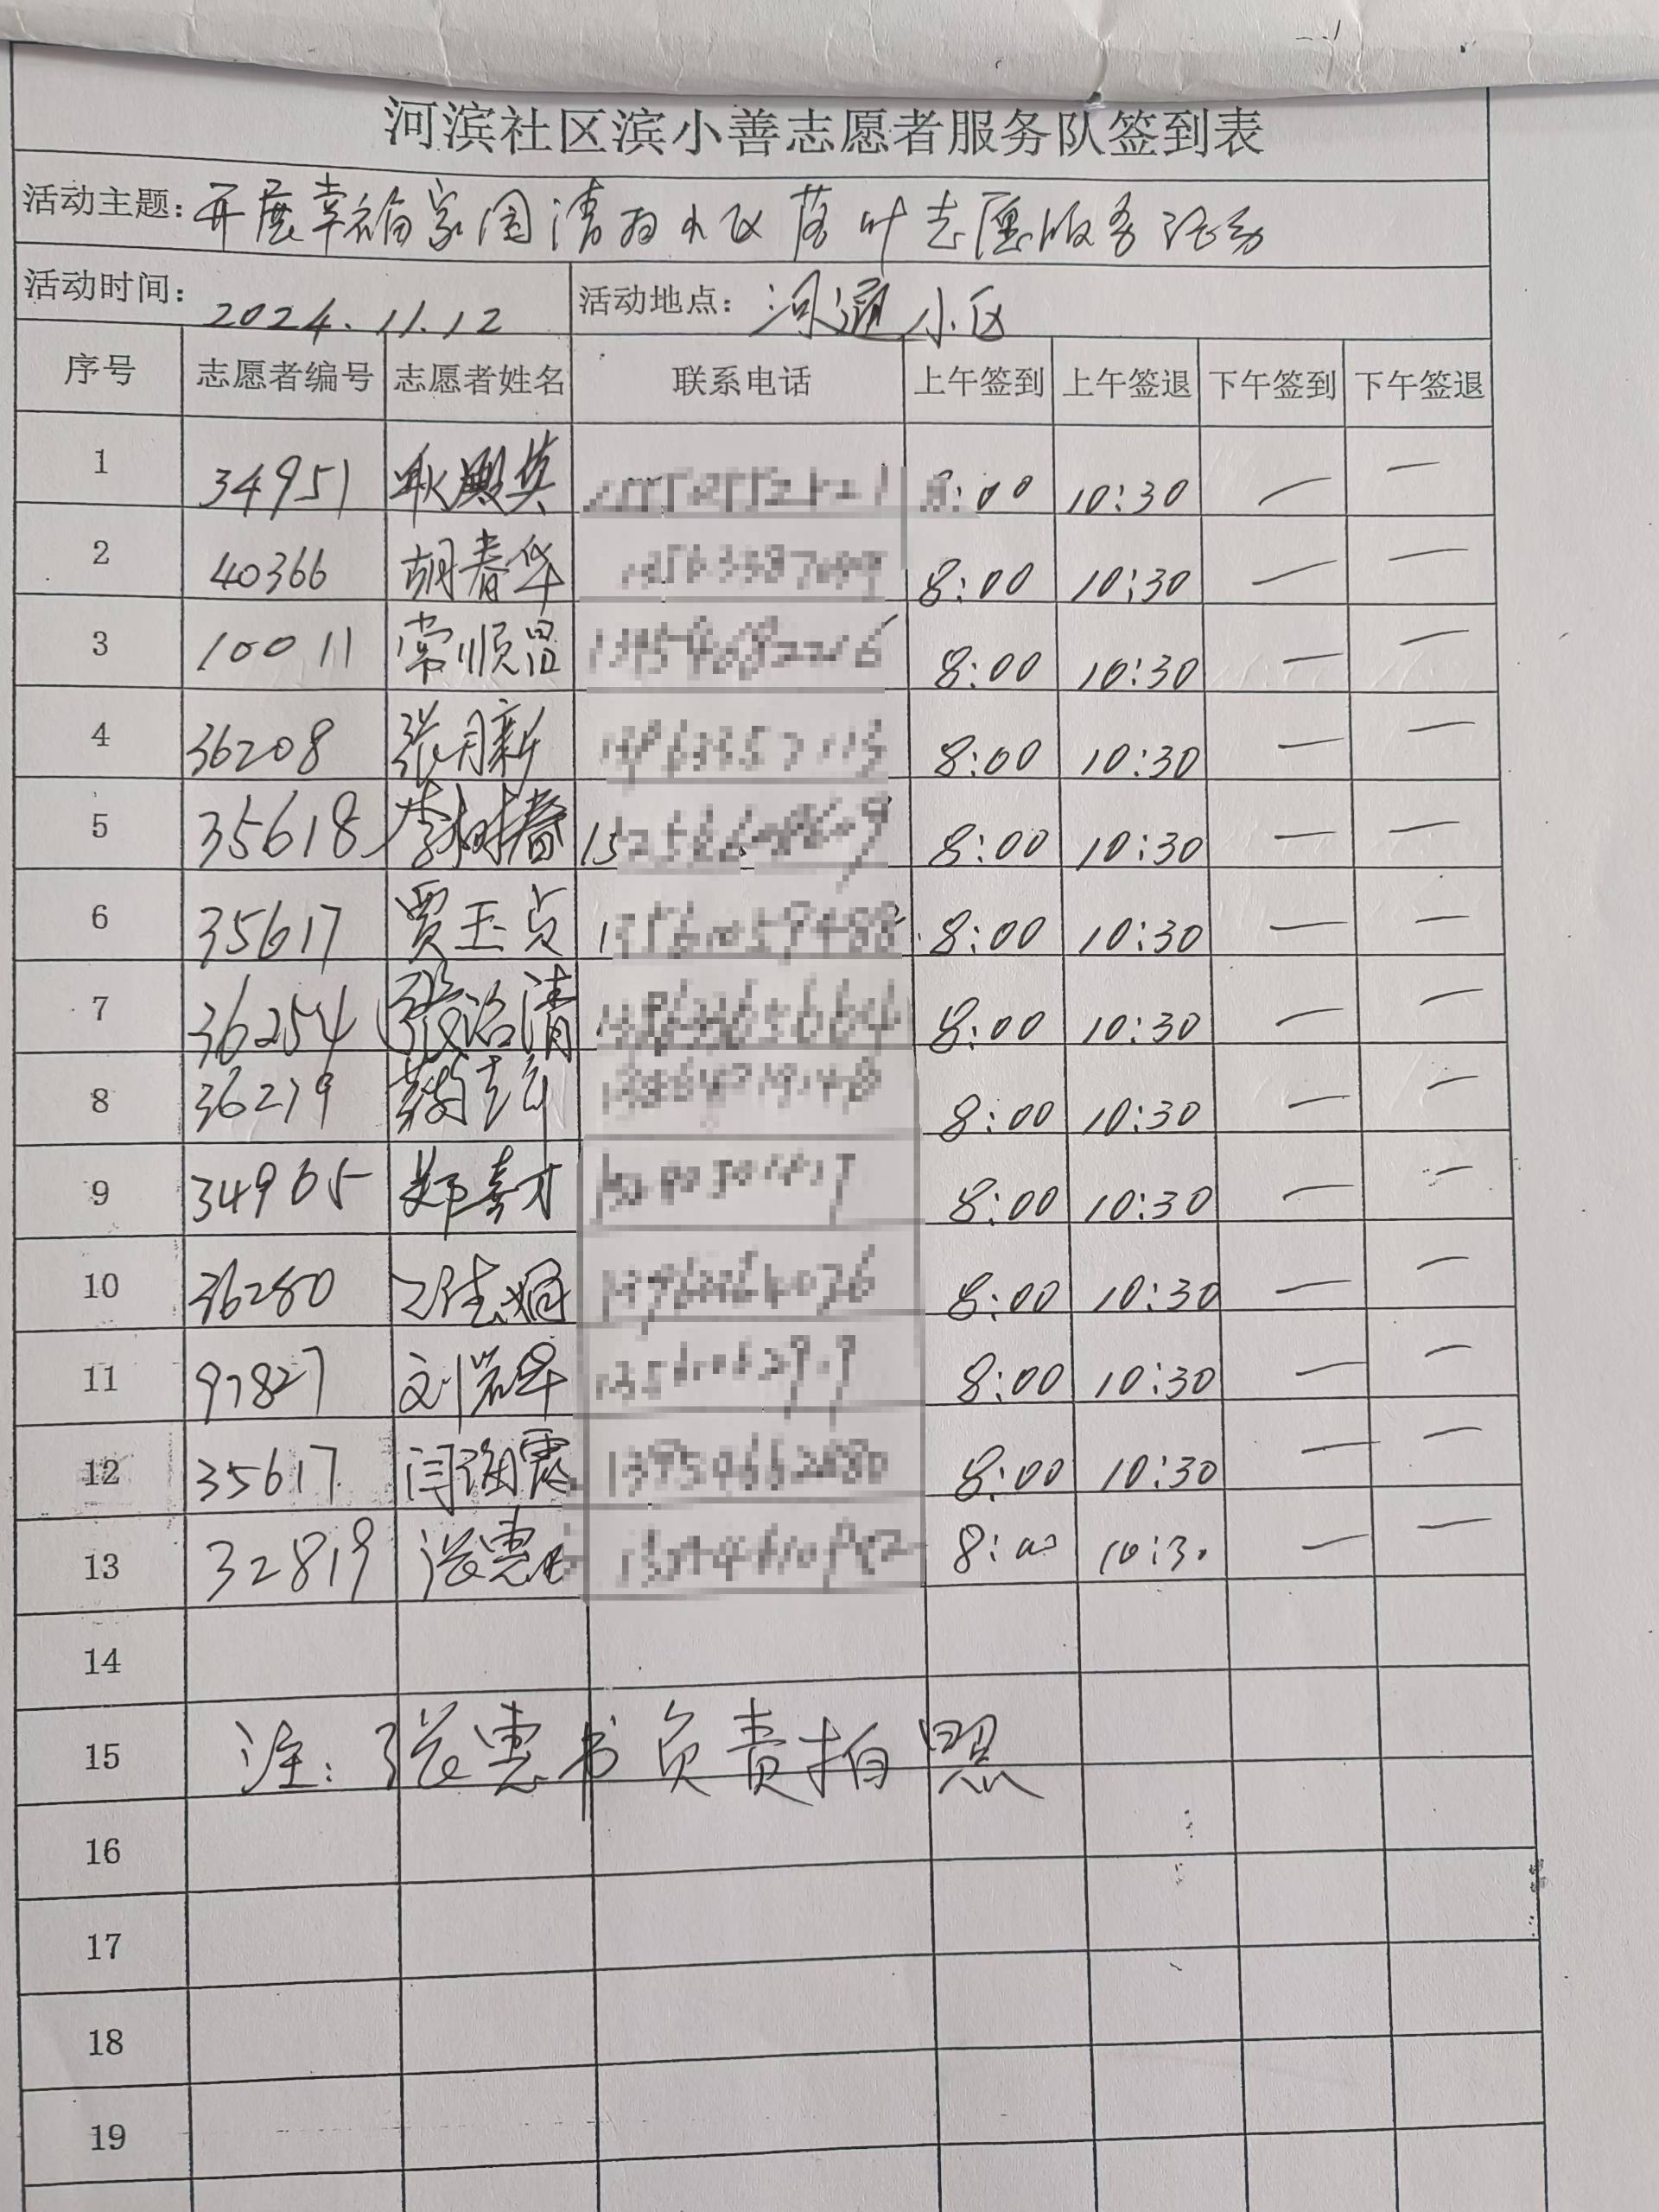 河滨社区滨小善志愿者服务队签到表
活动主题: 开展幸福家园清扫小区落叶志愿服务活动
活动时间: 2024.11.12 活动地点: 河 小区
序号 志愿者编号 志愿者姓名 联系电话 上午签到 上午签退 下午签到 下午签退
1 34951 8:00 10:30 — —
2 40366 胡春华 8:00 10:30 — —
3 10011 常顺昌 8:00 10:30 — —
4 36208 张月新 8:00 10:30 — —
5 35618 李树春 8:00 10:30 — —
6 35617 贾玉贞 8:00 10:30 — —
7 36254 张洛清 8:00 10:30 — —
8 36279 8:00 10:30 — —
9 34965 郑喜才 8:00 10:30 — —
10 36280 8:00 10:30 — —
11 97827 8:00 10:30 — —
12 35617 8:00 10:30 — —
13 32819 张惠 8:00 10:30 — —
14
15 注: 张惠书负责拍照
16
17
18
19